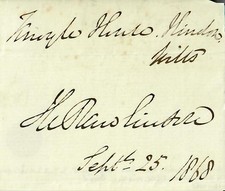 Knoyle House, Hindon,
Wilts
HCRawlinson
Septr. 25. 1868